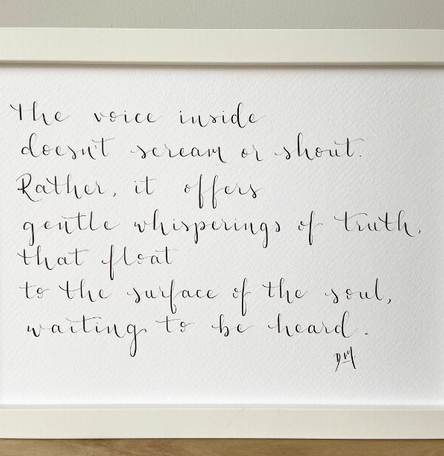 The voice inside
doesn't scream or shout.
Rather, it offers
gentle whisperings of truth,
that float
to the surface of the soul,
waiting to be heard.
DM